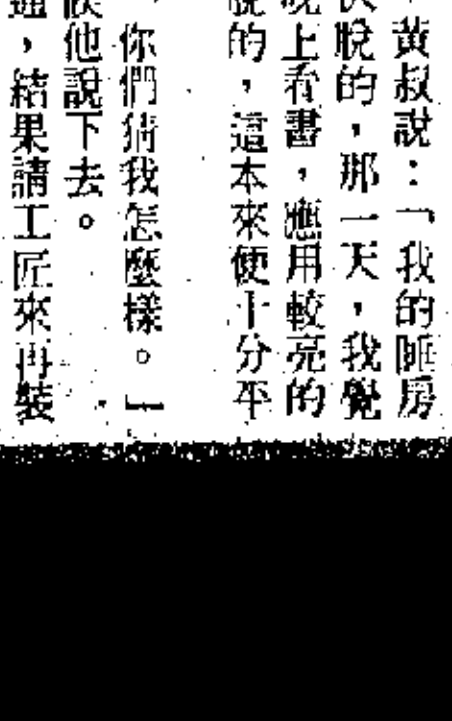 ，黃叔說：「我的睡房
脫的，那一天，我覺
晚上看書，應用較亮的
的，這本來便十分平
，你們猜我怎麼樣。」
他說下去。
，結果請工匠來再裝